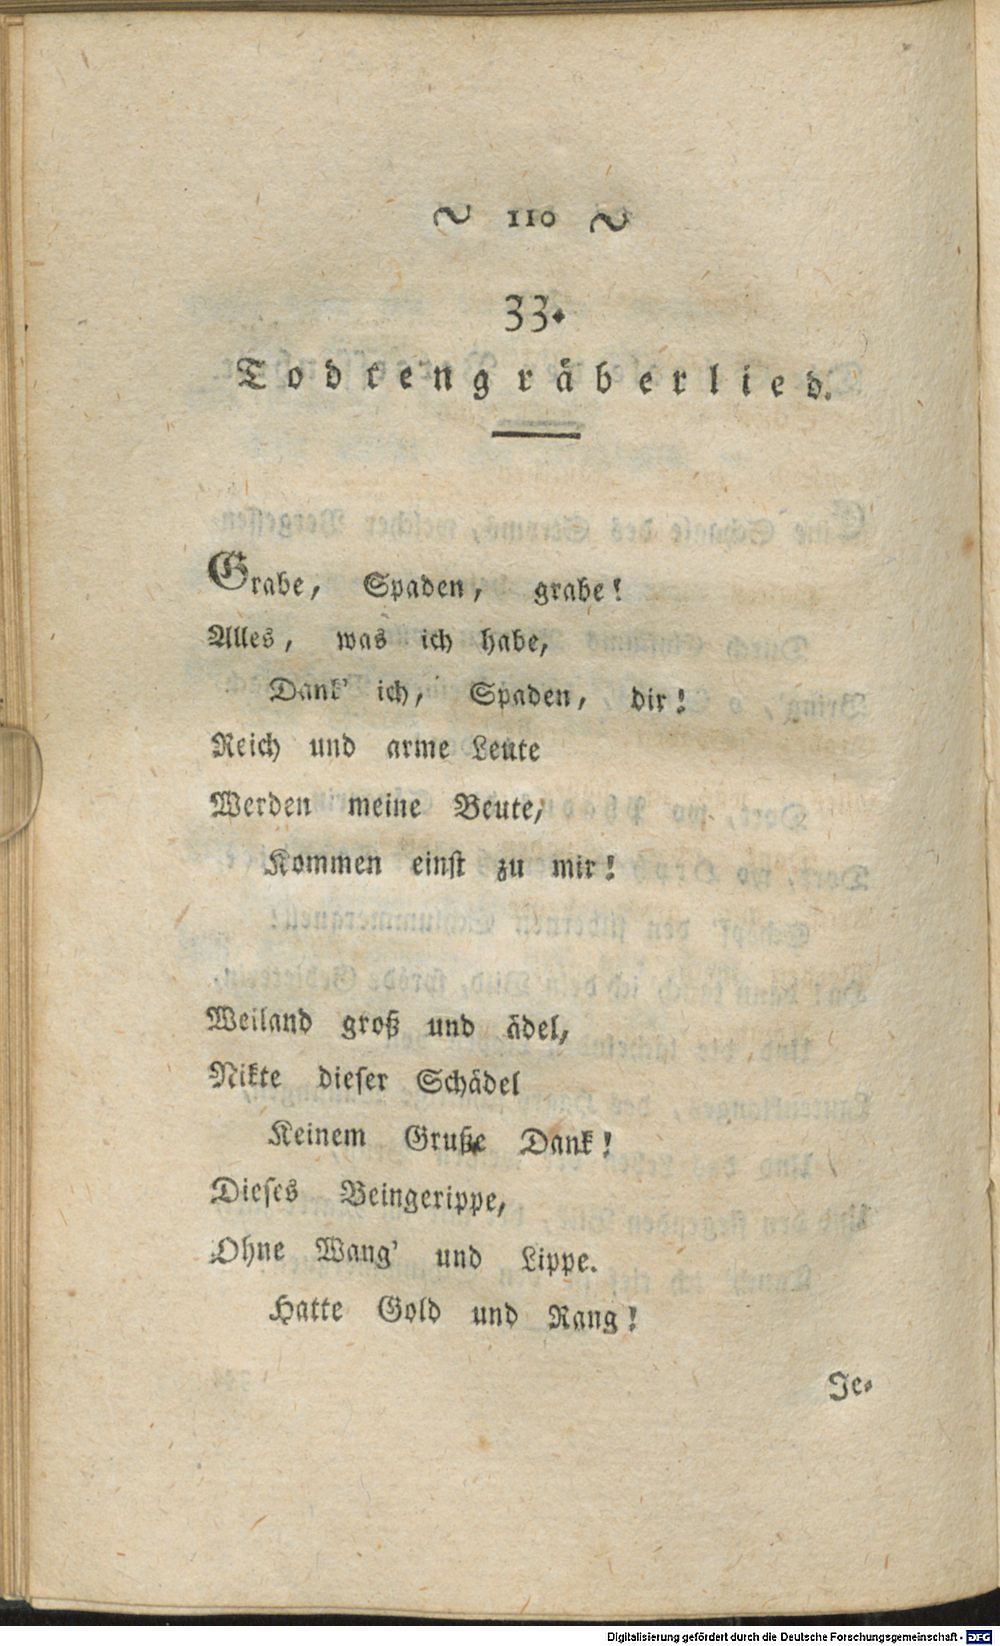 ~ 110 ~
33.
Todtengräberlied.
Grabe, Spaden, grabe!
Alles, was ich habe,
Dank' ich, Spaden, dir!
Reich und arme Leute
Werden meine Beute,
Kommen einst zu mir!
Weiland groß und ädel,
Nikte dieser Schädel
Keinem Gruße Dank!
Dieses Beingerippe,
Ohne Wang' und Lippe.
Hatte Gold und Rang!
Je-
Digitalisierung gefördert durch die Deutsche Forschungsgemeinschaft - DFG